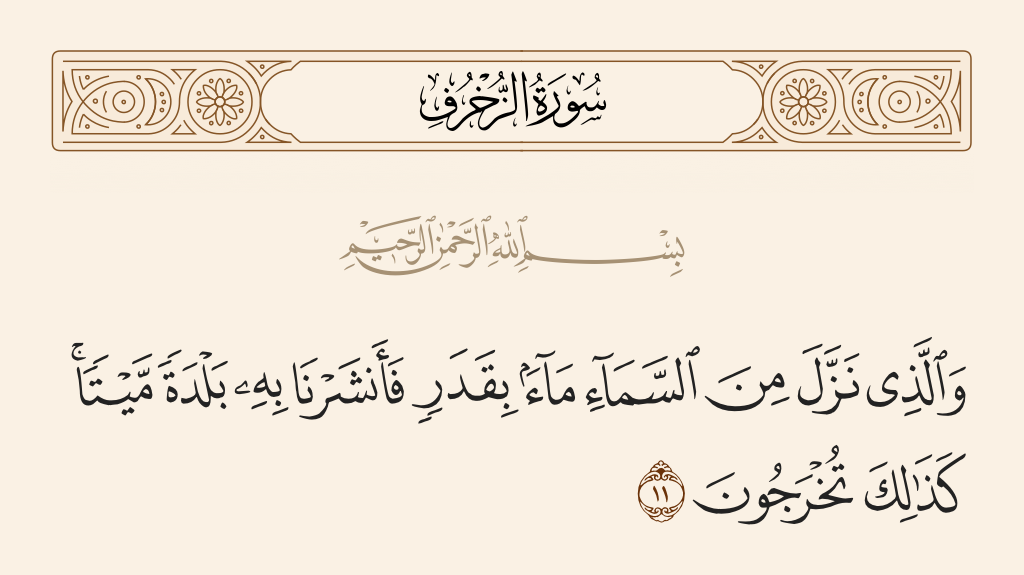 سُورَةُ الزُّخْرُفِ
بِسْمِ ٱللَّهِ ٱلرَّحْمَٰنِ ٱلرَّحِيمِ
وَٱلَّذِى نَزَّلَ مِنَ ٱلسَّمَآءِ مَآءًۢ بِقَدَرٍ فَأَنشَرْنَا بِهِۦ بَلْدَةً مَّيْتًا ۚ
كَذَٰلِكَ تُخْرَجُونَ ١١